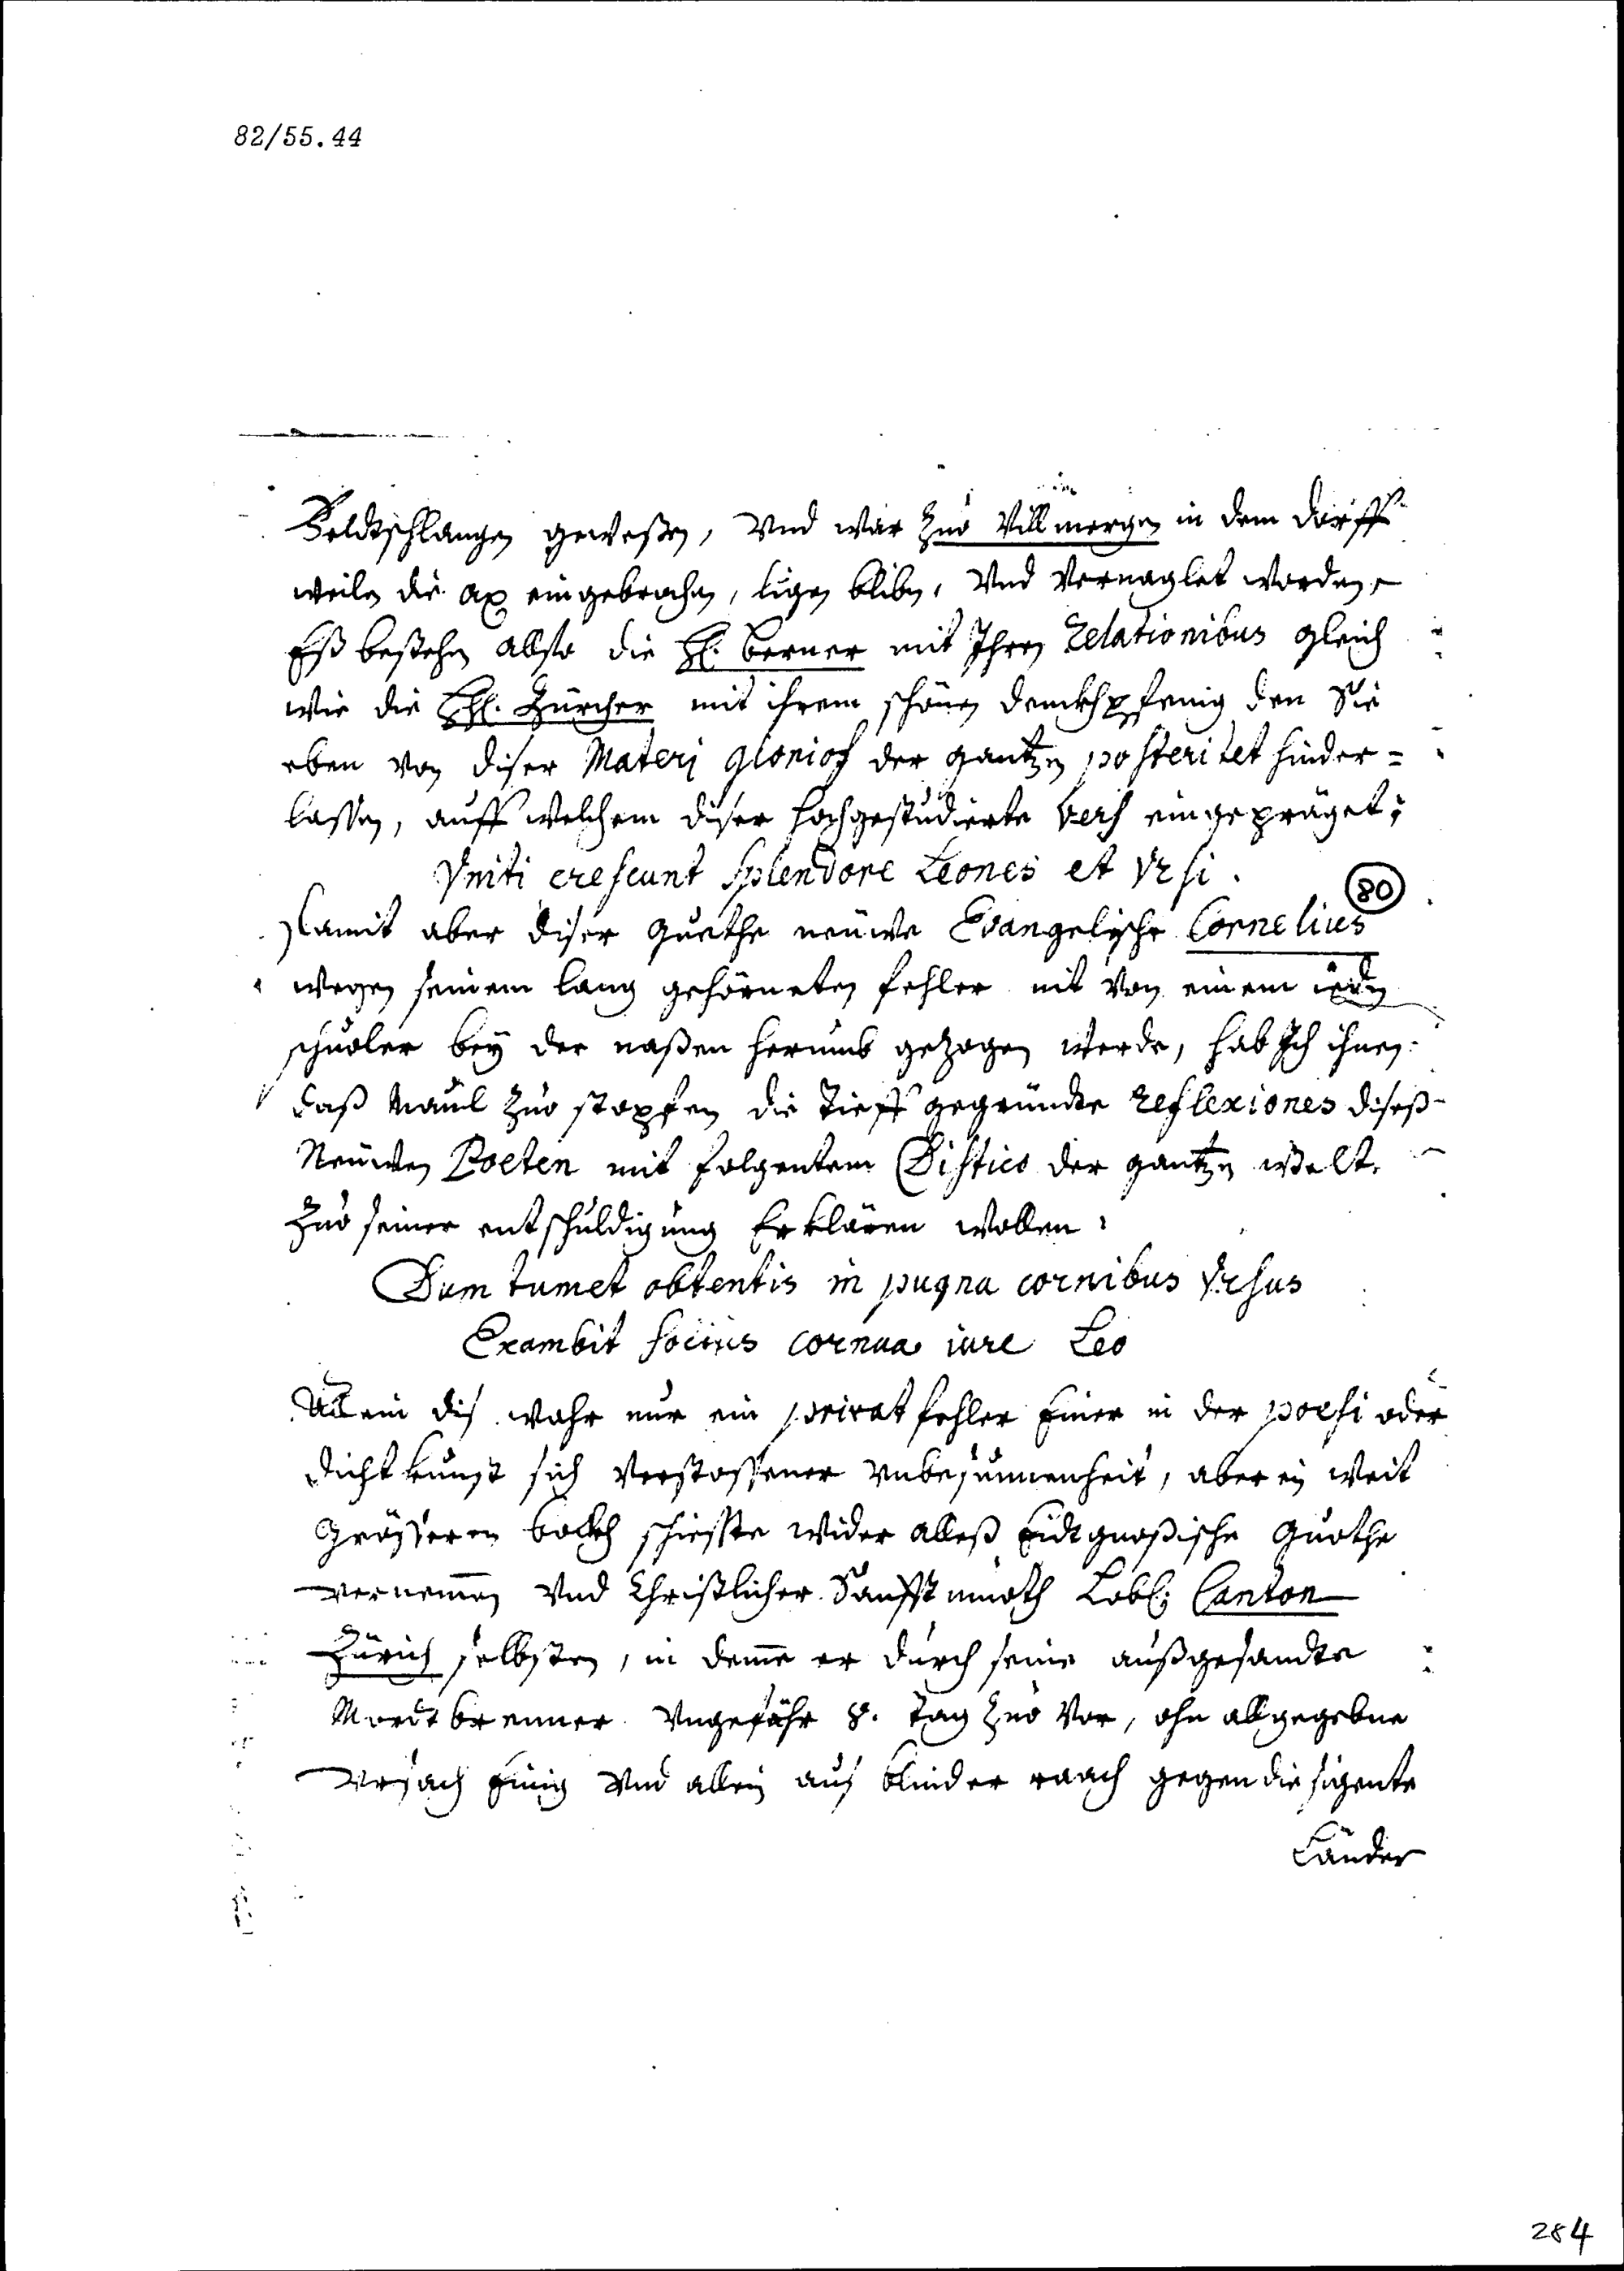 82/55.44
Feldtschlangen geweßen, Vnd war zuo Villmergen in dem dorff
weilen die ax eingebrochen, ligen bliben, Vnd Vernaglet worden,
Eß bestehen allso die H. Berner mit Ihren Relationibus gleich
wie die HH. Zürcher mit ihrem schönen denckhpfenig den Sie
eben von diser Materj glorios der gantzen posteritet hinder=
lassen, auff welchem diser hochgestudierte Vers eingepräget;
Vniti crescunt splendore Leones et Vrsi.
80
Damit aber diser guethe neüwe Evangelische Cornelius
wegen seinem lang gehörneten fehler nit von einem ieden
schuoler bey der naßen herumb gezogen werde, hab Ich ihnen
daß Maul zuo stopfen die tieff gegründte reflexiones diseß
Neüwen Poeten mit folgentem Distico der gantzen welt
zuo seiner entschuldigung Erklären wollen:
Dum tumet obtentis in pugna cornibus Vrsus
Exambit socius cornua iure Leo
Allein dis wahr nur ein privat fehler Einer in der poesi oder
dichtkunst sich Verstossener vnbesunnenheit, aber ein weit
Grösseren bockh schieste wider alleß Eidtgnoßische guothe
vernemen Vnd Christlicher Sanfftmuoth Lobl: Canton
Zürich selbsten, in deme er durch seine außgesandte
Mordtbrenner Vngefähr 8. tag zuo Vor, ohn all gegebne
Vrsach Einig Vnd allein aus blinder raach gegen die sigente
Länder
284